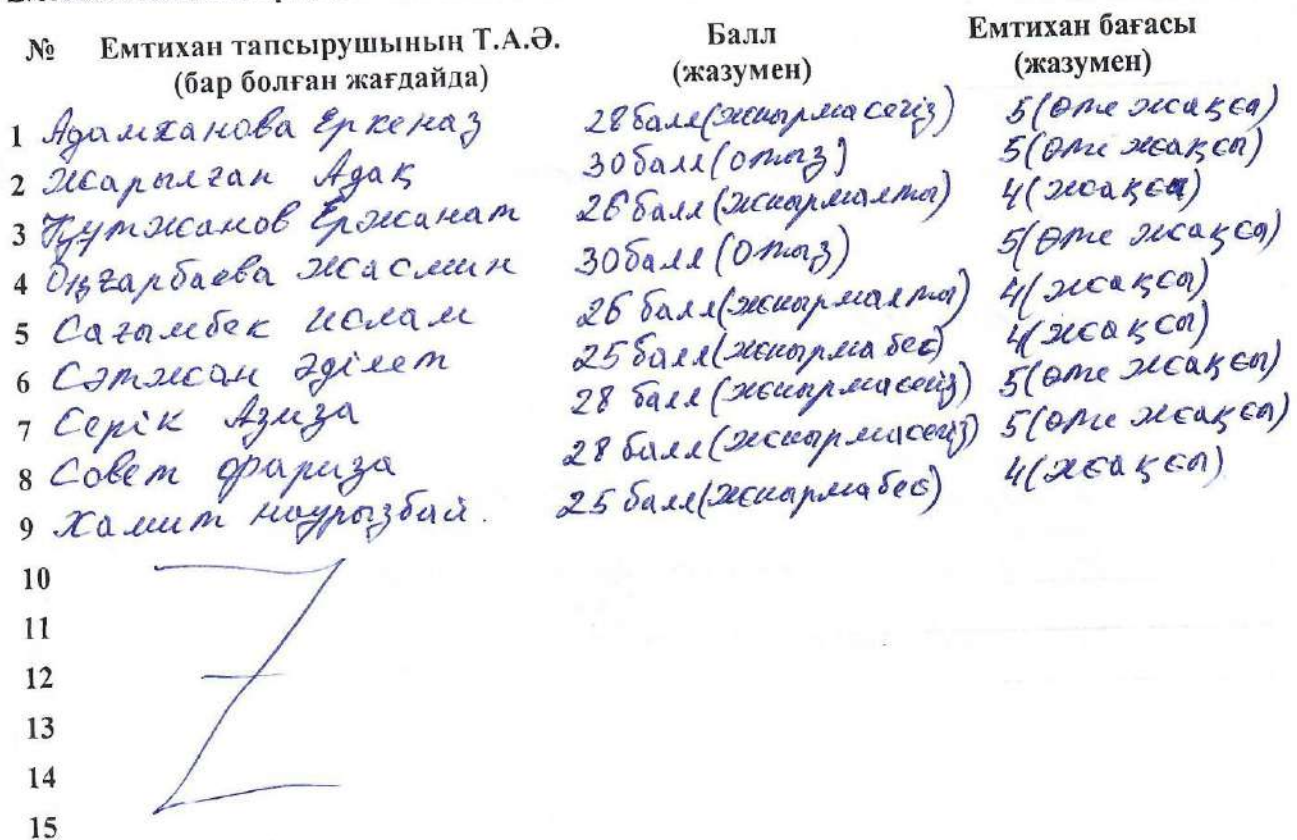 № Емтихан тапсырушының Т.А.Ә. Балл Емтихан бағасы
(бар болған жағдайда) (жазумен) (жазумен)
1 Адамханова Еркеназ 28 балл(жиырма сегіз) 5(өте жақсы)
2 Жарылған Адақ 30 балл(отыз) 5(өте жақсы)
3 Құтжанов Ержанат 26 балл(жиырмалты) 4(жақсы)
4 Оңғарбаева Жасмин 30 балл (отыз) 5(өте жақсы)
5 Сағымбек Ислам 26 балл(жиырмалты) 4(жақсы)
6 Сәтжан Әділет 25 балл(жиырма бес) 4(жақсы)
7 Серік Азиза 28 балл(жиырмасегіз) 5(өте жақсы)
8 Совет Фариза 28 балл(жиырмасегіз) 5(өте жақсы)
9 Хамит Наурызбай. 25 балл(жиырмабес) 4(жақсы)
10
11
12
13
14
15